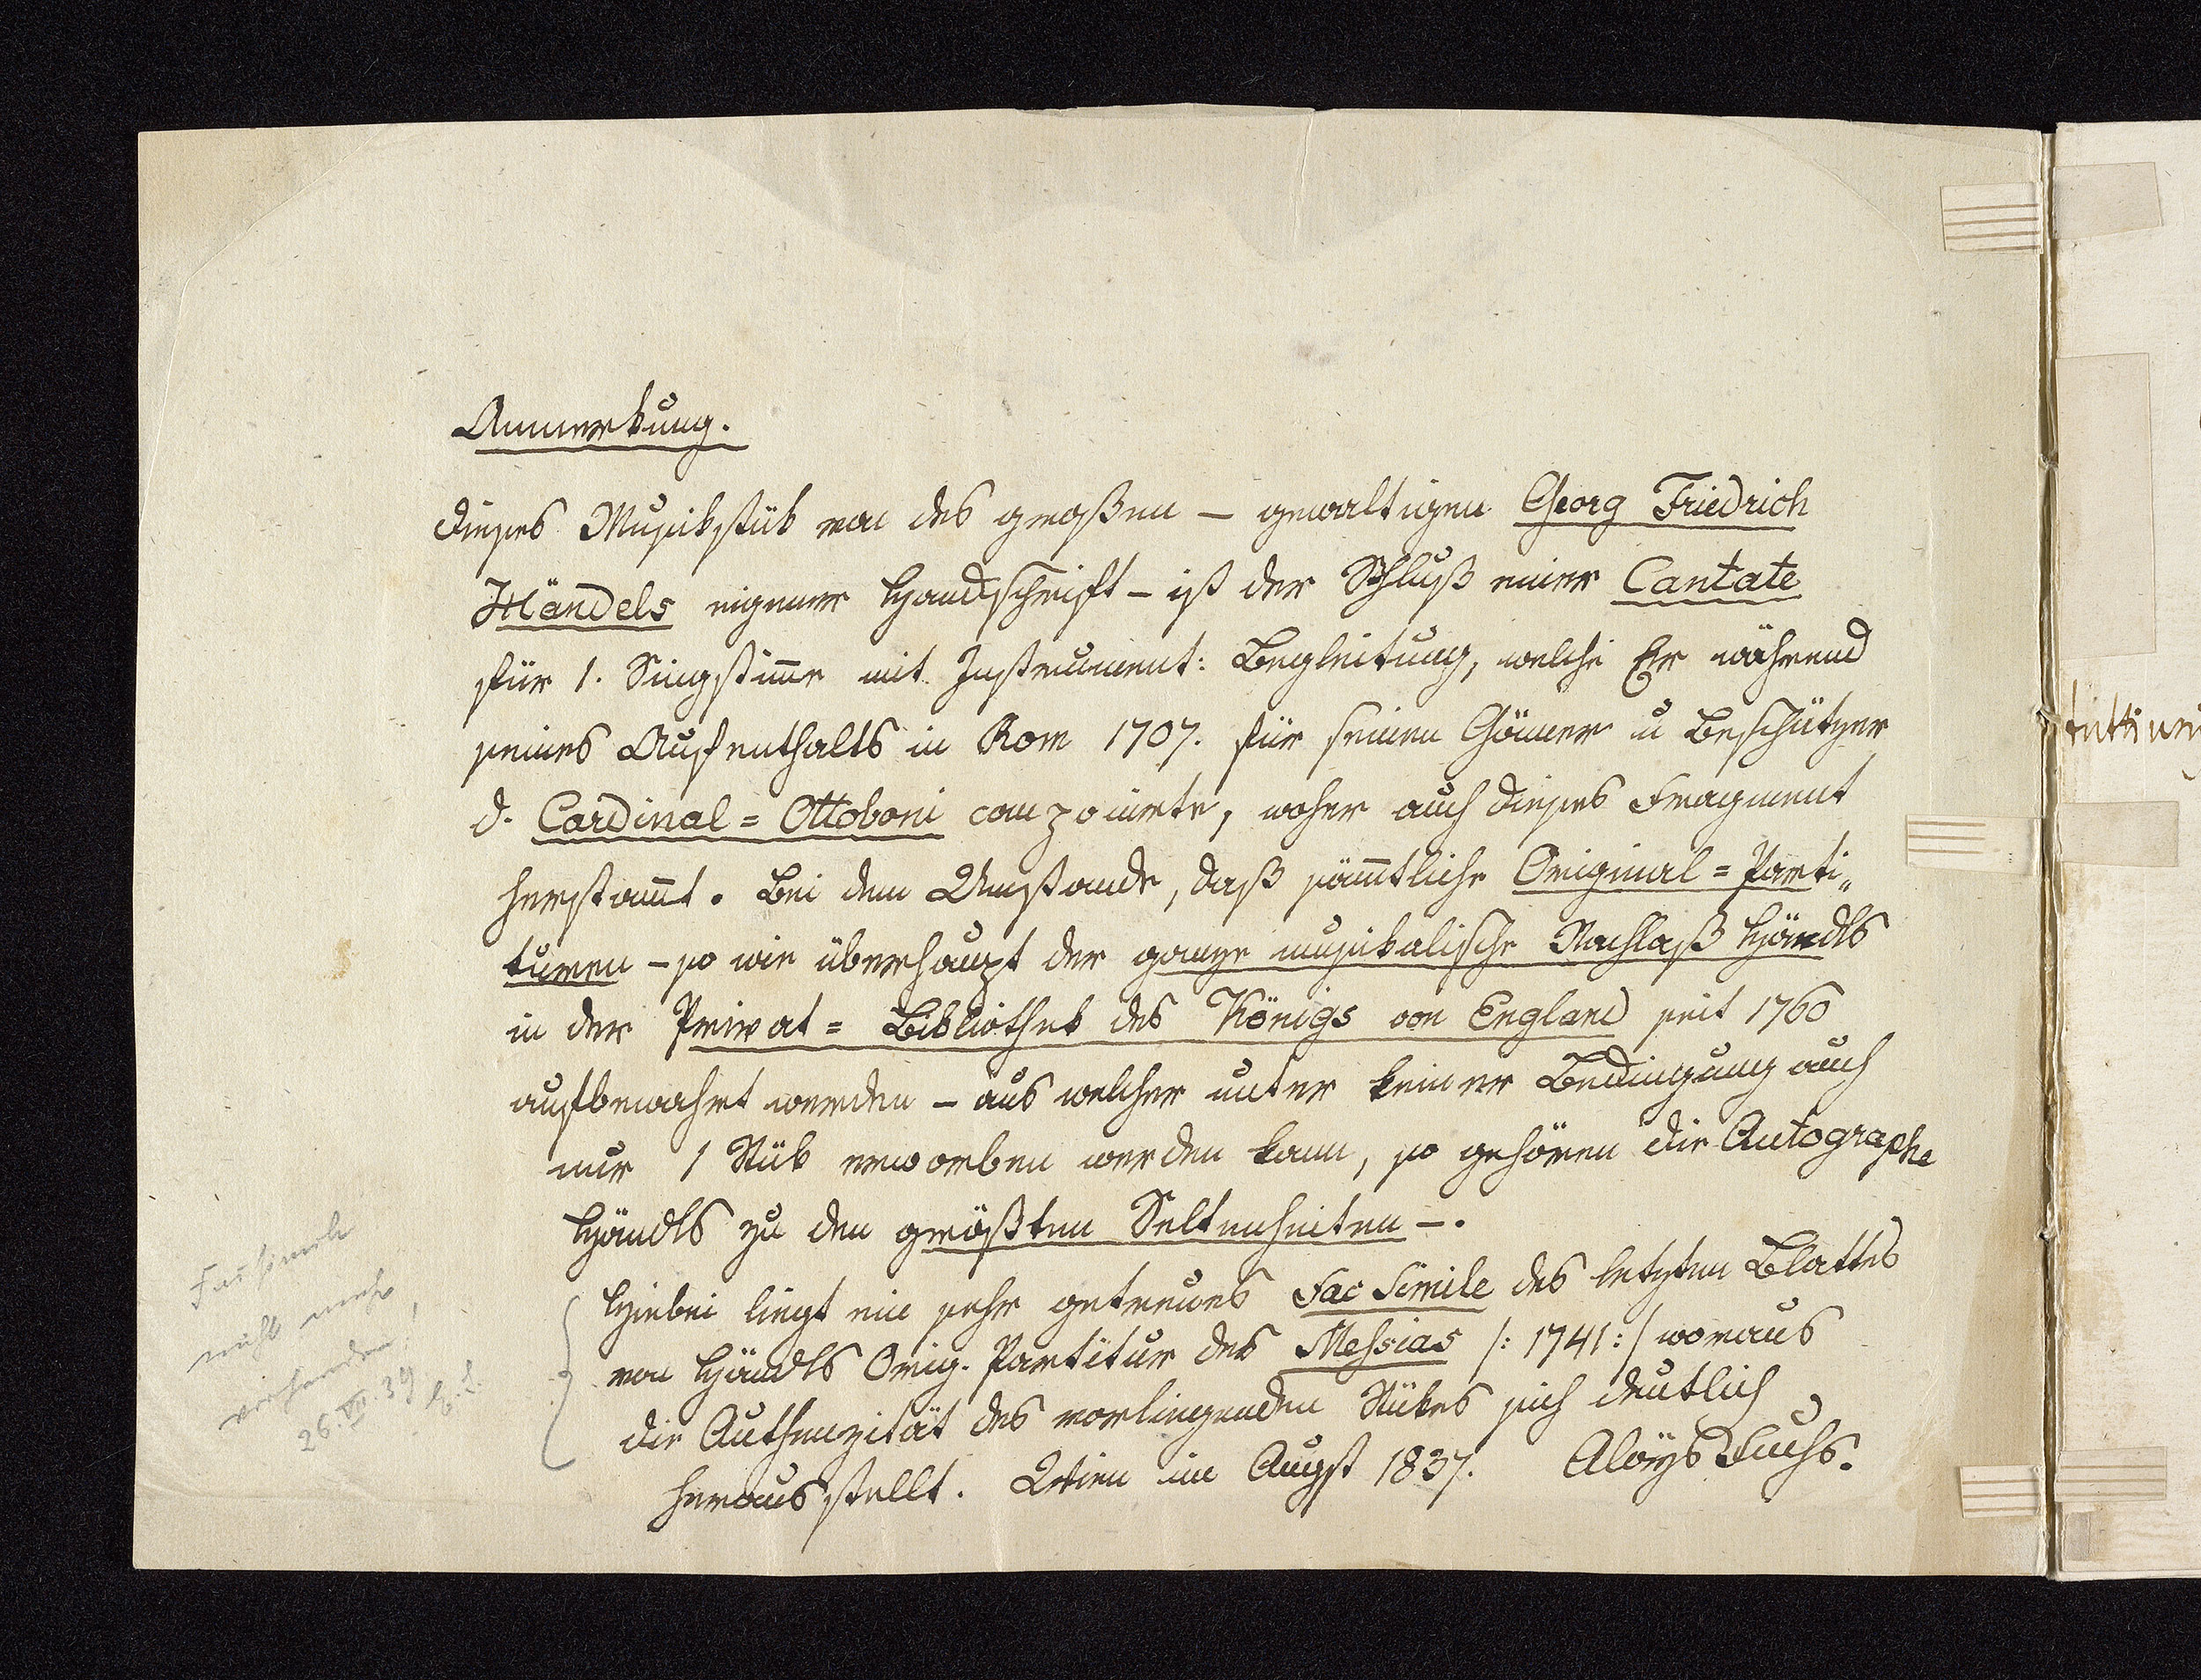 Anmerkung.
Dieses Musikstük von des großen – gewaltigen Georg Friedrich
Händels eigener Handschrift – ist der Schluß einer Cantate
für 1. Singstim̄e mit Instrument: Begleitung, welche Er während
seines Aufenthalts in Rom 1707. für seinen Gönner u Beschützer
d. Cardinal = Ottoboni componirte, woher auch dieses Fragment
herstam̄t. Bei dem Umstande, daß säm̄tliche Original = Parti„
turen – so wie überhaupt der ganze musikalische Nachlaß Händls
in der Privat = Bibliothek des Königs von England seit 1760
aufbewahrt werden – aus welcher unter keiner Bedingung auch
nur 1 Stük erworben werden kann, so gehören die Autographe
Händls zu den größten Seltenheiten –.
Hiebei liegt ein sehr getreues Fac Simile des letzten Blattes
von Händls Orig. Partitur des Messias /: 1741 :/ woraus
die Authenzität des vorliegenden Stükes sich deutlich
herausstellt. Wien im Augst 1837. Aloys Fuchs.
Facsimile
nicht mehr
vorhanden!
26.VII.39
tutti